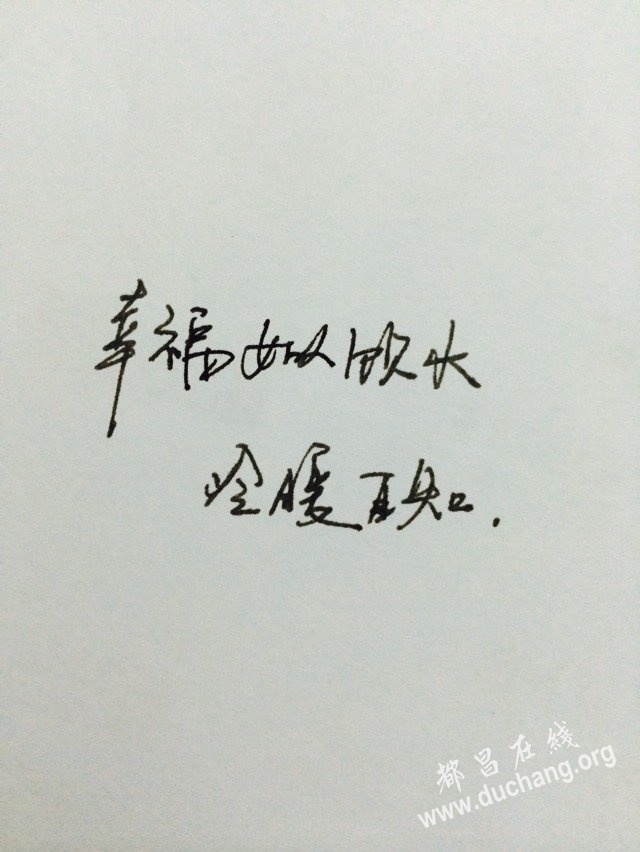 幸福如人饮水
冷暖自知.
都昌在线
www.duchang.org